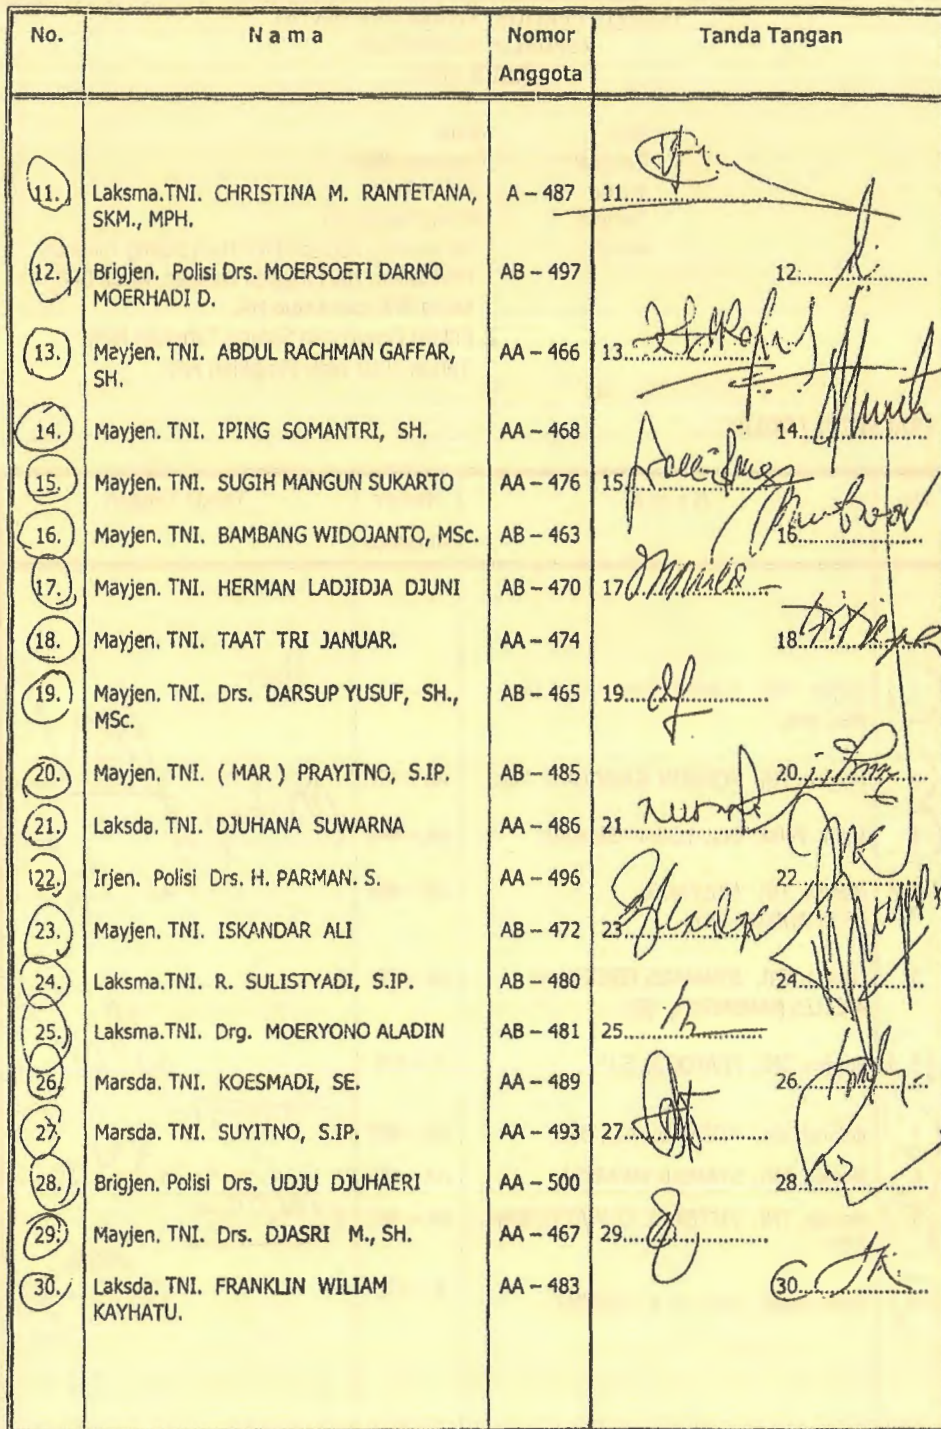 No. N a m a Nomor Anggota Tanda Tangan
11. Laksma.TNI. CHRISTINA M. RANTETANA, A – 487 11
SKM., MPH.
12. Brigjen. Polisi Drs. MOERSOETI DARNO AB – 497 12
MOERHADI D.
13. Mayjen. TNI. ABDUL RACHMAN GAFFAR, AA – 466 13
SH.
14. Mayjen. TNI. IPING SOMANTRI, SH. AA – 468 14
15. Mayjen. TNI. SUGIH MANGUN SUKARTO AA – 476 15
16. Mayjen. TNI. BAMBANG WIDOJANTO, MSc. AB – 463 16
17. Mayjen. TNI. HERMAN LADJIDJA DJUNI AB – 470 17
18. Mayjen. TNI. TAAT TRI JANUAR. AA – 474 18
19. Mayjen. TNI. Drs. DARSUP YUSUF, SH., AB – 465 19
MSc.
20. Mayjen. TNI. ( MAR ) PRAYITNO, S.IP. AB – 485 20
21. Laksda. TNI. DJUHANA SUWARNA AA – 486 21
22. Irjen. Polisi Drs. H. PARMAN. S. AA – 496 22
23. Mayjen. TNI. ISKANDAR ALI AB – 472 23
24. Laksma.TNI. R. SULISTYADI, S.IP. AB – 480 24
25. Laksma.TNI. Drg. MOERYONO ALADIN AB – 481 25
26. Marsda. TNI. KOESMADI, SE. AA – 489 26
27. Marsda. TNI. SUYITNO, S.IP. AA – 493 27
28. Brigjen. Polisi Drs. UDJU DJUHAERI AA – 500 28
29. Mayjen. TNI. Drs. DJASRI M., SH. AA – 467 29
30. Laksda. TNI. FRANKLIN WILIAM AA – 483 30
KAYHATU.